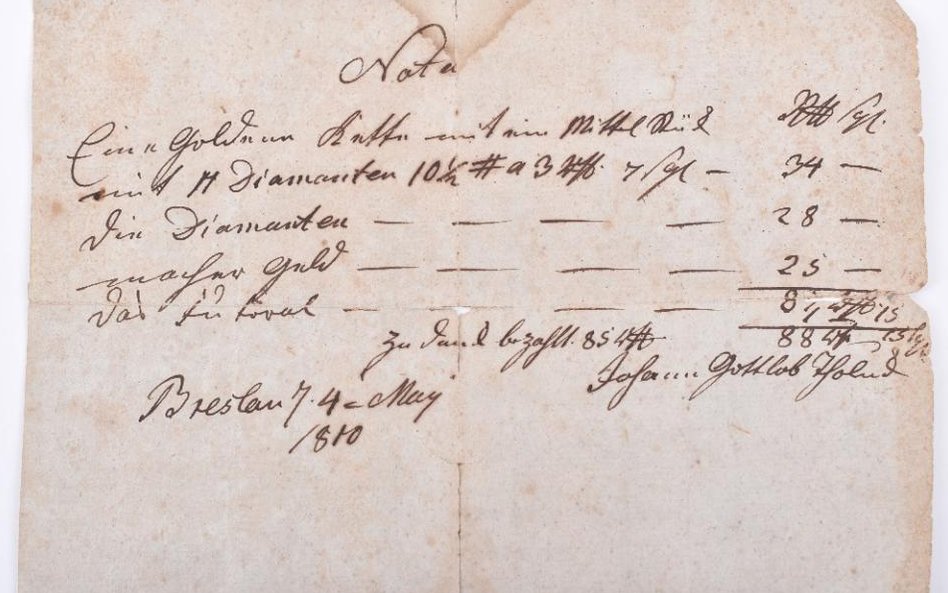 Nota
Rtl Sgl.
Eine Goldene Kette mit ein Mittl Stük
mit Diamanten 10 1/2 # a 3 Rtl. 7 Sgl — 34 —
die Diamanten — — — — 28 —
macher Geld — — — — 25 —
das Futoral — — — — 15
88 Rtl 15 Sgl
zu dank bezahlt. 85 Rtl
Johann Gottlob
Breslau 4 May
1810